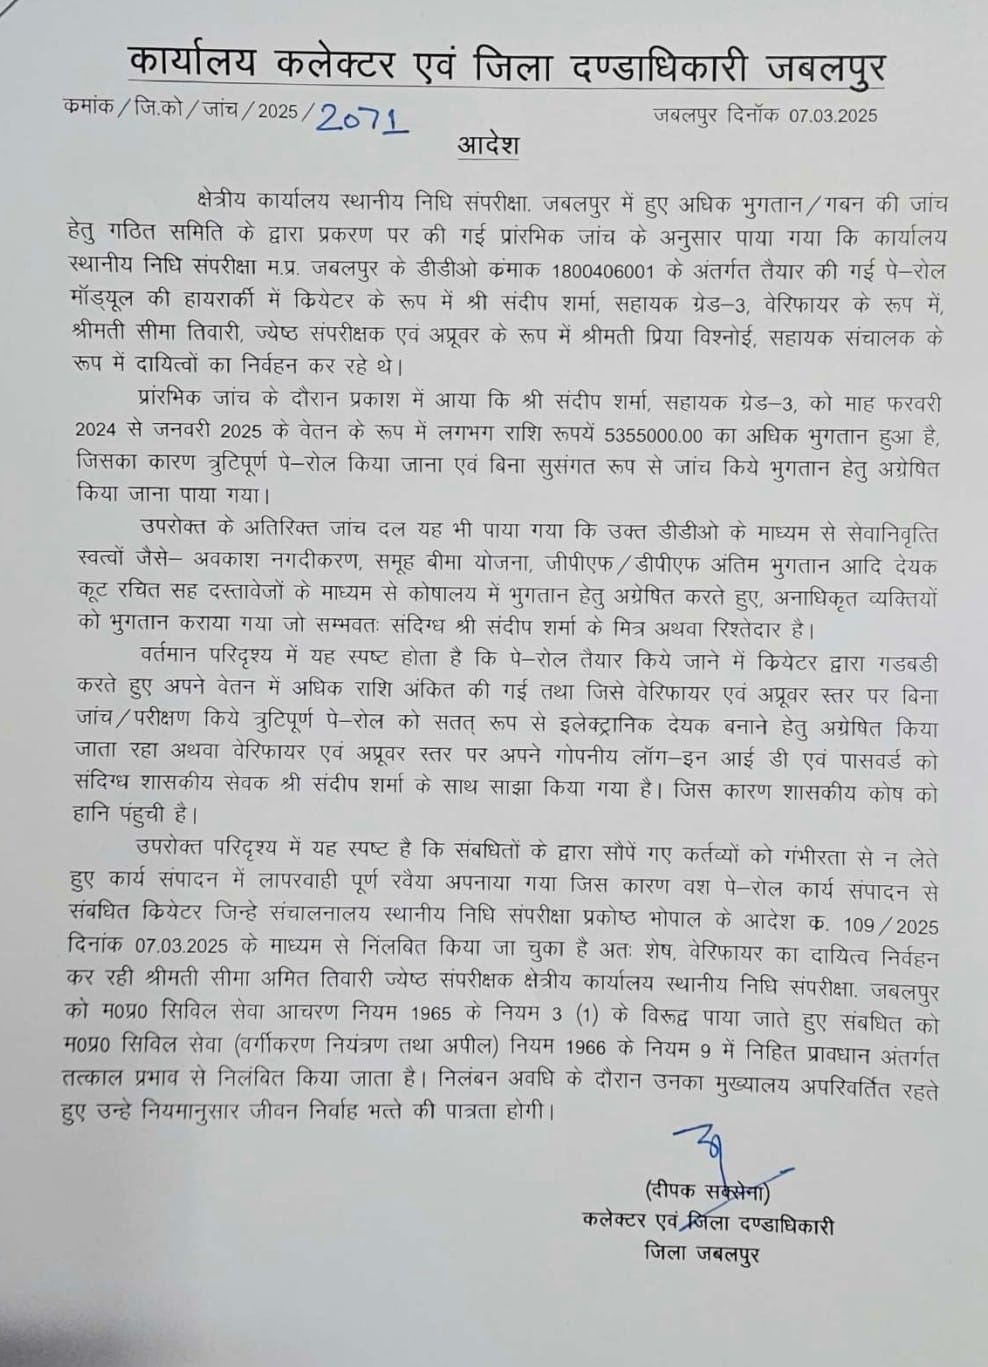 कार्यालय कलेक्टर एवं जिला दण्डाधिकारी जबलपुर
क्रमांक/जि.को/जांच/2025/2071
जबलपुर दिनॉक 07.03.2025
आदेश
क्षेत्रीय कार्यालय स्थानीय निधि संपरीक्षा. जबलपुर में हुए अधिक भुगतान/गबन की जांच
हेतु गठित समिति के द्वारा प्रकरण पर की गई प्रांरभिक जांच के अनुसार पाया गया कि कार्यालय
स्थानीय निधि संपरीक्षा म.प्र. जबलपुर के डीडीओ क्रंमाक 1800406001 के अंतर्गत तैयार की गई पे–रोल
मॉड्यूल की हायरार्की में क्रियेटर के रूप में श्री संदीप शर्मा, सहायक ग्रेड–3, वेरिफायर के रूप में,
श्रीमती सीमा तिवारी, ज्येष्ठ संपरीक्षक एवं अप्रूवर के रूप में श्रीमती प्रिया विश्नोई, सहायक संचालक के
रूप में दायित्वों का निर्वहन कर रहे थे।
प्रांरभिक जांच के दौरान प्रकाश में आया कि श्री संदीप शर्मा, सहायक ग्रेड–3, को माह फरवरी
2024 से जनवरी 2025 के वेतन के रूप में लगभग राशि रूपयें 5355000.00 का अधिक भुगतान हुआ है,
जिसका कारण त्रुटिपूर्ण पे–रोल किया जाना एवं बिना सुसंगत रूप से जांच किये भुगतान हेतु अग्रेषित
किया जाना पाया गया।
उपरोक्त के अतिरिक्त जांच दल यह भी पाया गया कि उक्त डीडीओ के माध्यम से सेवानिवृत्ति
स्वत्वों जैसे– अवकाश नगदीकरण, समूह बीमा योजना, जीपीएफ/डीपीएफ अंतिम भुगतान आदि देयक
कूट रचित सह दस्तावेजों के माध्यम से कोषालय में भुगतान हेतु अग्रेषित करते हुए, अनाधिकृत व्यक्तियों
को भुगतान कराया गया जो सम्भवतः संदिग्ध श्री संदीप शर्मा के मित्र अथवा रिश्तेदार है।
वर्तमान परिदृश्य में यह स्पष्ट होता है कि पे–रोल तैयार किये जाने में क्रियेटर द्वारा गडबडी
करते हुए अपने वेतन में अधिक राशि अंकित की गई तथा जिसे वेरिफायर एवं अप्रूवर स्तर पर बिना
जांच/परीक्षण किये त्रुटिपूर्ण पे–रोल को सतत् रूप से इलेक्ट्रानिक देयक बनाने हेतु अग्रेषित किया
जाता रहा अथवा वेरिफायर एवं अप्रूवर स्तर पर अपने गोपनीय लॉग–इन आई डी एवं पासवर्ड को
संदिग्ध शासकीय सेवक श्री संदीप शर्मा के साथ साझा किया गया है। जिस कारण शासकीय कोष को
हानि पंहुची है।
उपरोक्त परिदृश्य में यह स्पष्ट है कि संबधितों के द्वारा सौपें गए कर्तव्यों को गंभीरता से न लेते
हुए कार्य संपादन में लापरवाही पूर्ण रवैया अपनाया गया जिस कारण वश पे–रोल कार्य संपादन से
संबधित क्रियेटर जिन्हे संचालनालय स्थानीय निधि संपरीक्षा प्रकोष्ठ भोपाल के आदेश क्र. 109/2025
दिनांक 07.03.2025 के माध्यम से निंलबित किया जा चुका है अतः शेष, वेरिफायर का दायित्व निर्वहन
कर रही श्रीमती सीमा अमित तिवारी ज्येष्ठ संपरीक्षक क्षेत्रीय कार्यालय स्थानीय निधि संपरीक्षा. जबलपुर
को म0प्र0 सिविल सेवा आचरण नियम 1965 के नियम 3 (1) के विरूद्व पाया जाते हुए संबधित को
म0प्र0 सिविल सेवा (वर्गीकरण नियंत्रण तथा अपील) नियम 1966 के नियम 9 में निहित प्रावधान अंतर्गत
तत्काल प्रभाव से निलंबित किया जाता है। निलंबन अवधि के दौरान उनका मुख्यालय अपरिवर्तित रहते
हुए उन्हे नियमानुसार जीवन निर्वाह भत्ते की पात्रता होगी।
(दीपक सक्सेना)
कलेक्टर एवं जिला दण्डाधिकारी
जिला जबलपुर